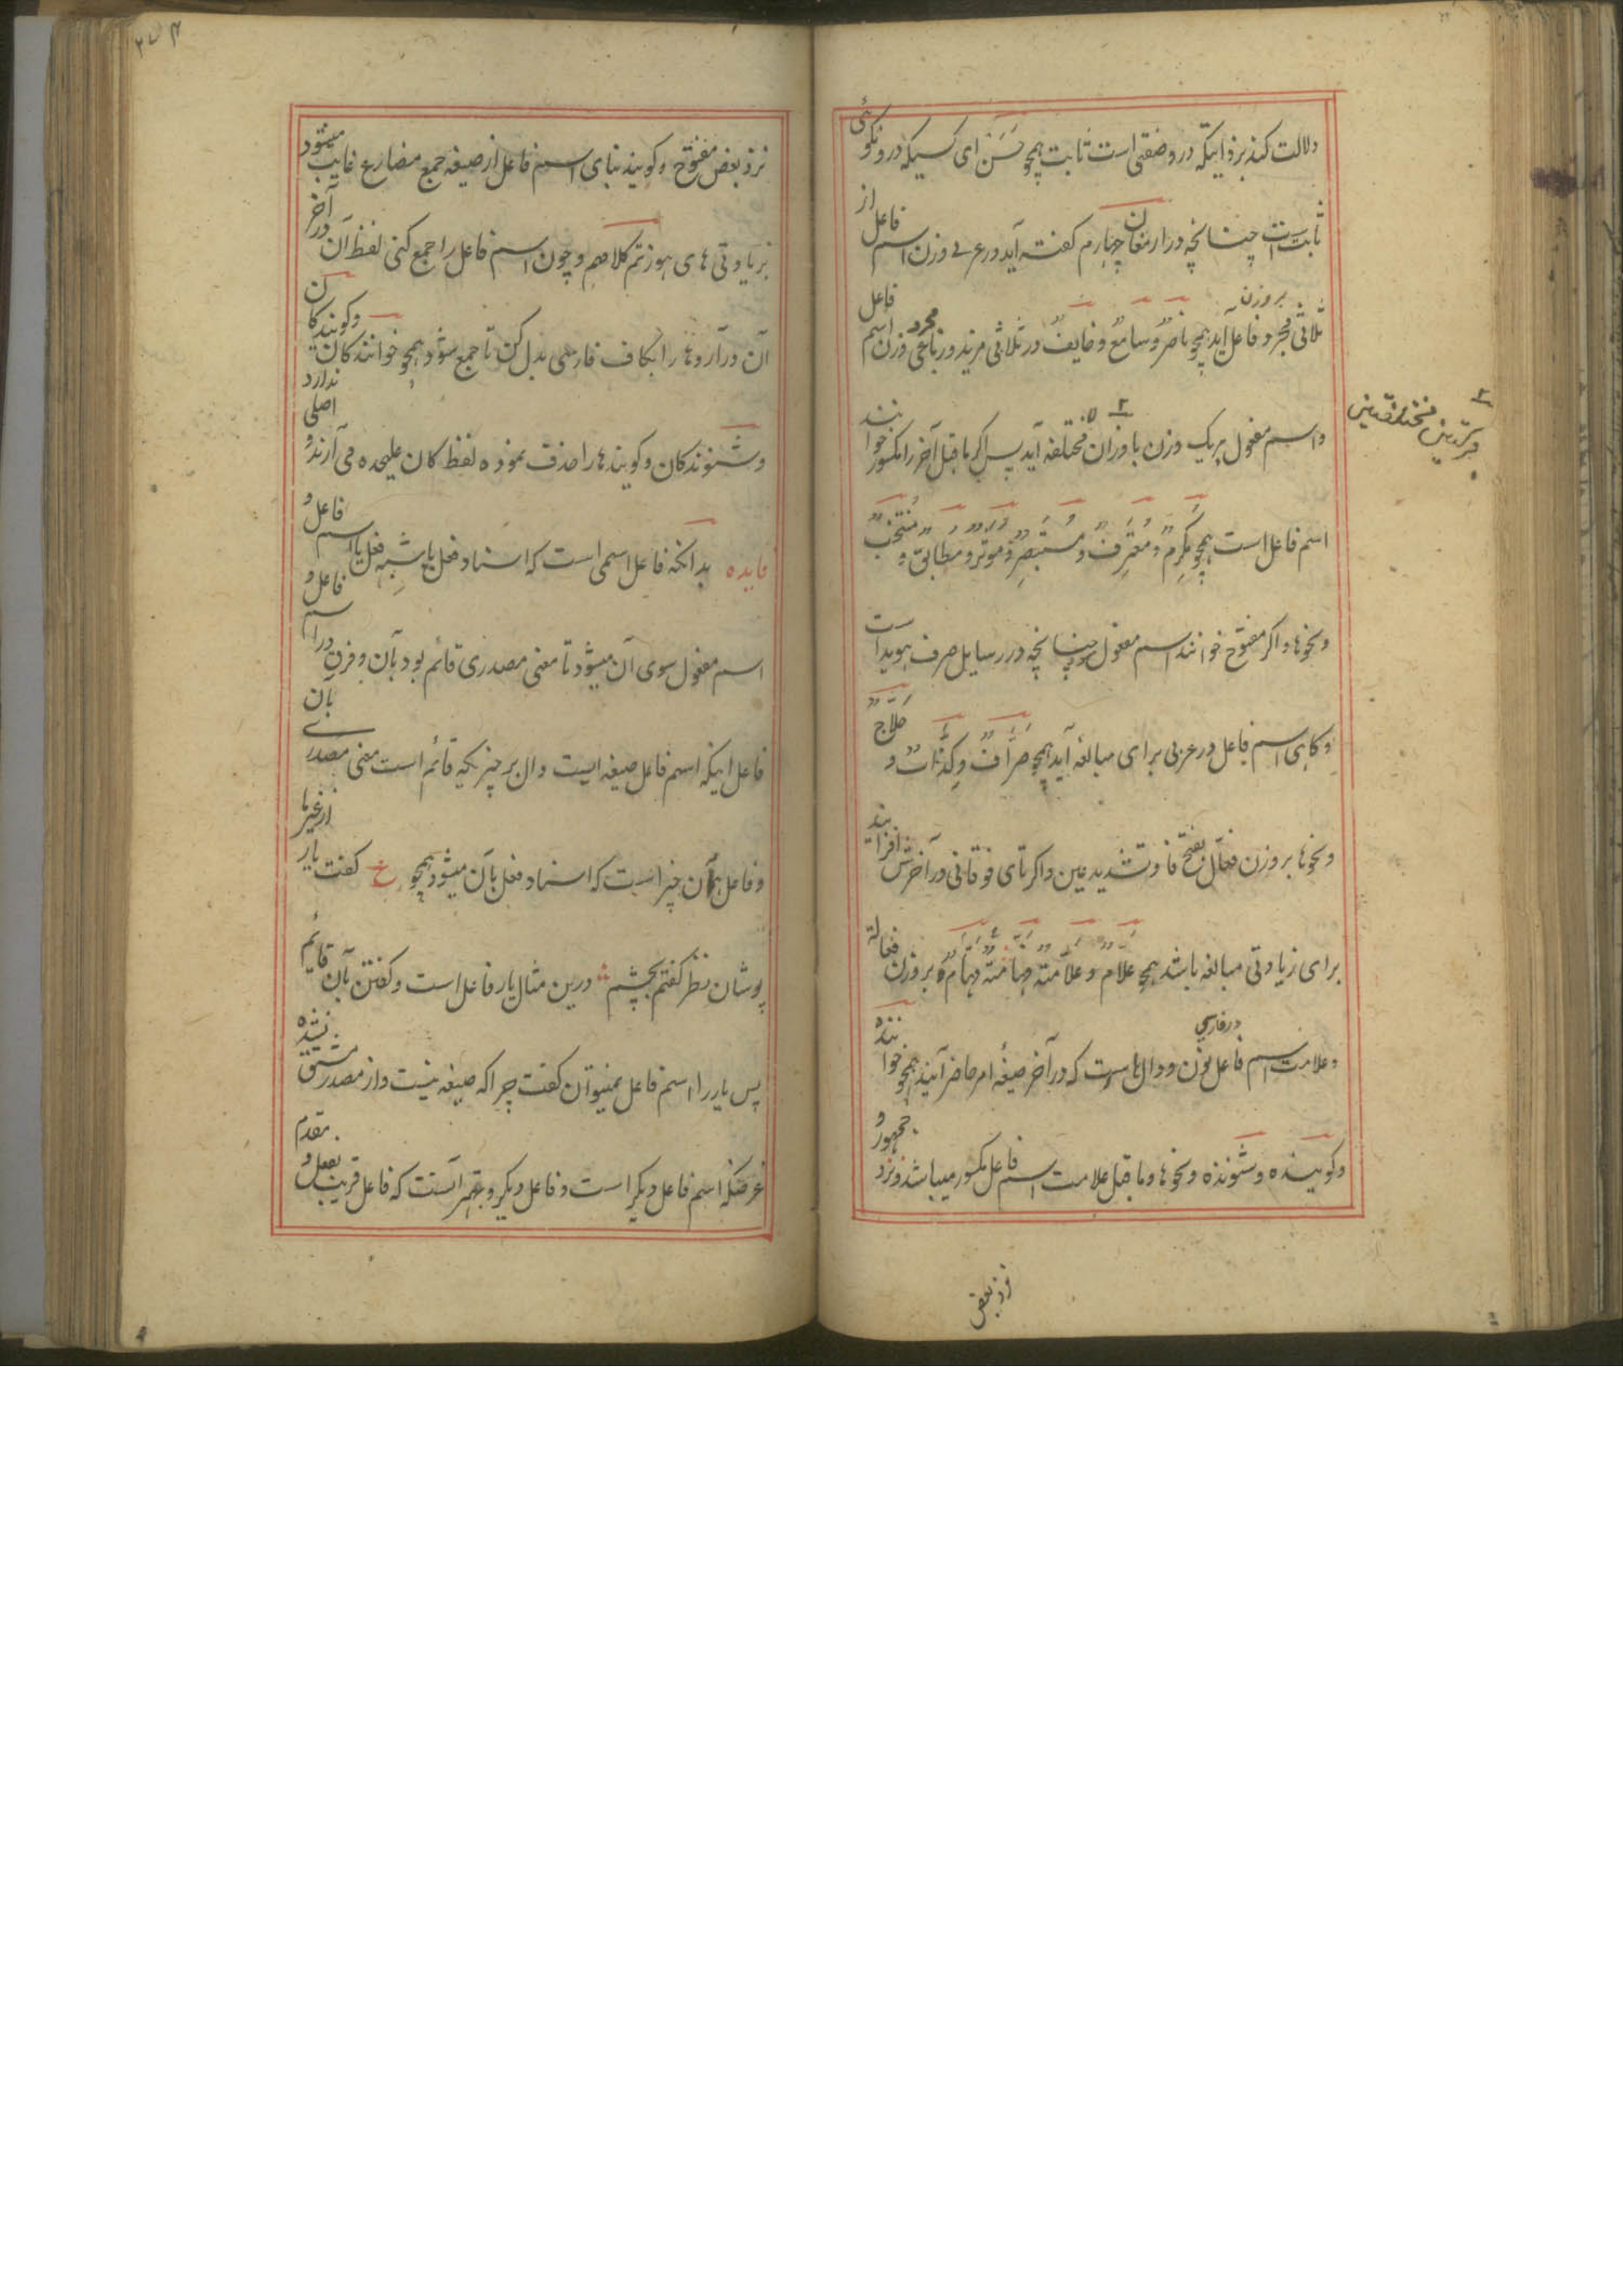 دلالت کند بر ذاتیکه درو صفتی است ثابت همچو حَسَن ای کسیکه درو نکوئی
ثابت است چنانچه در ارمغان چهارم کفته آید در عربی وزن اسم فاعل از
ثلاثی مجرد بروزن فاعل آید همچو ناصر و سامع و خایف و در ثلاثی مزید و رباعی مجرد وزن اسم فاعل
واسم مفعول بریک وزن باوزان مختلفه آید پس اکر ماقبل آخر را مکسور خوانند
اسم فاعل است همچو مُکرِمٌ و معترِفٌ و مستبصِرٌ و موثر و مطابقٌ و مُنتخبٌ
ونحوها و اکر مفتوح خوانند اسم مفعول چنانچه در رسایل صرف هویداست
وکاهی اسم فاعل در عربی برای مبالغه آید همچو صرّافٌ وکذّابٌ و حلّاجٌ
ونحوها بروزن فعّال بفتح فا و تشدید عین و اکر تای فوقانی در آخرش افزایند
برای زیادتی مبالغه باشد همچو علّام و علّامة فهّامة بروزن فعالة
وعلامت اسم فاعل در فارسی نون و دال و هاست که در آخر صیغهٔ امر حاضر آیند همچو خواننده
وکوینده و شنونده ونحوها وماقبل علامت اسم فاعل مکسور میباشد نزد جمهور و
نزد بعض
نزد بعض مفتوح وکویند بنای اسم فاعل از صیغه جمع مضارع غایب میشود
بزیادتی های هوز تم کلامهم و چون اسم فاعل را جمع کنی لفظ آن در آخر
آن درآر و ها را بکاف فارسی بدل کن تا جمع شود همچو خوانندکان و کویندکان
وشنوندکان وکویند ها را حذف نموده لفظ کان علیحده می آرند و اصلی ندارد
فایده بدانکه فاعل اسمی است که اسناد فعل یا شبه فعل یا اسم فاعل و
اسم مفعول سوی آن میشود تا معنی مصدری قائم بود بآن و فرق در اسم فاعل و
فاعل اینکه اسم فاعل صیغه ایست دال بر چیزیکه قائم است معنی مصدری بآن
وفاعل همان چیز است که اسناد فعل بآن میشود همچو ع کفت یار از غیر ما
پوشان نظر کفتم بچشم درین مثال یار فاعل است و کفتن بآن قائم
پس یار را اسم فاعل نمیتوان کفت چرا که صیغه نیست و از مصدر مشتق نشده
غرضکه اسم فاعل دیکر است و فاعل دیکر و بهتر آنست که فاعل قریب بفعل و مقدم